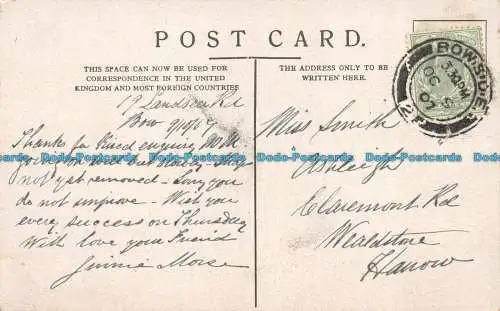 POST CARD.
THIS SPACE CAN NOW BE USED FOR
CORRESPONDENCE IN THE UNITED
KINGDOM AND MOST FOREIGN COUNTRIES
THE ADDRESS ONLY TO BE
WRITTEN HERE.
BOW
3.30PM
OC 9
19 Landseer Rd
Bow 9/10/07
Thanks for kind enquiry
not yet removed - Sorry you
do not improve - Wish you
every success on Thursday
With love your Friend
Jinnie Morse
Miss Smith
Ashleigh
Claremont Rd
Wealdstone
Harrow
Postcards-Cards Postcards-Cards Postcards-Cards Postcards-Cards